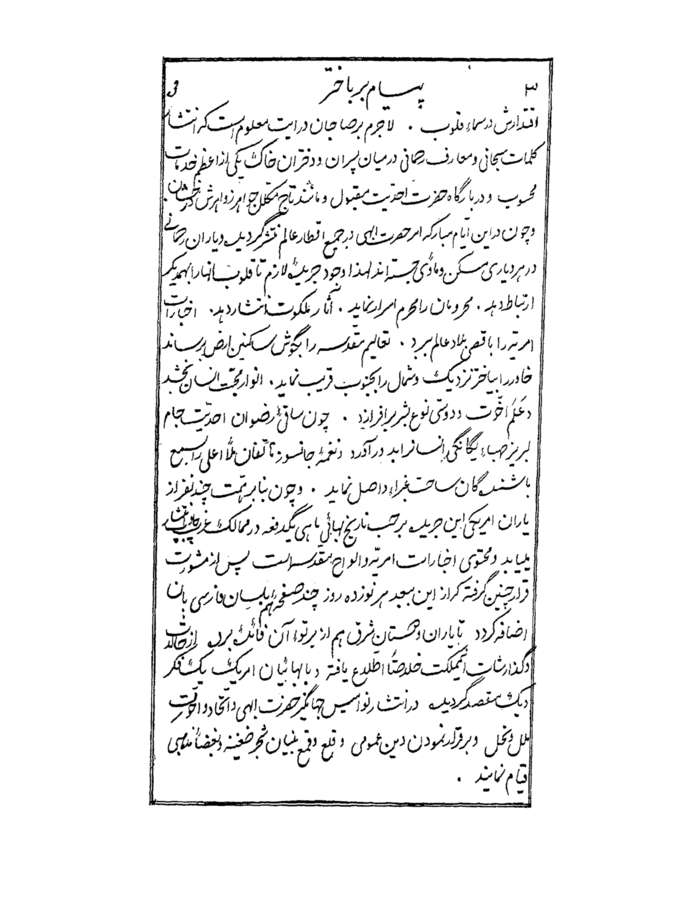 ۳ پیام بر باختر
اقتدارش در سماء قلوب . لاجرم بر صاحبان درایت معلوم است که انتشار
کلمات سبحانی و معارف رحمانی در میان پسران و دختران خاک یکی از اعظم خدمات
محسوب و در بارگاه حضرت احدیت مقبول و مانند تاج مکلل جواهر زواهرش درخشان
و چون در این ایام مبارکه امر حضرت الهی در جمیع اقطار عالم منتشر گردیده و یاران رحمانی
در هر دیاری مسکن و مأوی جسته اند لهذا وجود جریده لازم تا قلوب انها را بهمدیگر
ارتباط دهد . محرومان را محرم اسرار نماید . آثار ملکوت انتشار دهد . اخبارات
امریه را باقصی بلاد عالم برد . تعالیم مقدسه را بگوش ساکنین ارض برساند
خاور را بباختر نزدیک و شمال را بجنوب قریب نماید . انوار محبت انسان بخشد
و علم اخوت و دوستی نوع بشر بر افرازد . چون ساقی رضوان احدیت جام
لبریز صهباء یگانگی انسانرا بدور آورد و نغمه جانسوز تا کفان ملأ اعلی را بسمع
باشندگان ساحت غبراء واصل نماید . و چون بنا بر همت چند نفر از
یاران امریکا این جریده بر حسب تاریخ بهائی ماهی یکدفعه در ممالک غرب انتشار
مییابد و محتوی اخبارات امریه و الواح مقدسه است پس از مشورت
قرار چنین گرفته که از این ببعد هر نوزده روز چند صفحه هم بلسان فارسی بان
اضافه گردد تا یاران و دوستان شرق هم از پرتو آن فائده برند از حالات
و گذارشات آنمملکت خلاصةً اطلاع یافته و با بهائیان امریک یک فکر
و یک مقصد گردیده در انتشار نوامیس جهانگیر حضرت الهی و اتحاد و اخوت
ملل و نحل و برقرار نمودن دین عمومی و قلع و قمع بنیان شجر ضغینه و بغضاء مذهبی
قیام نمایند .